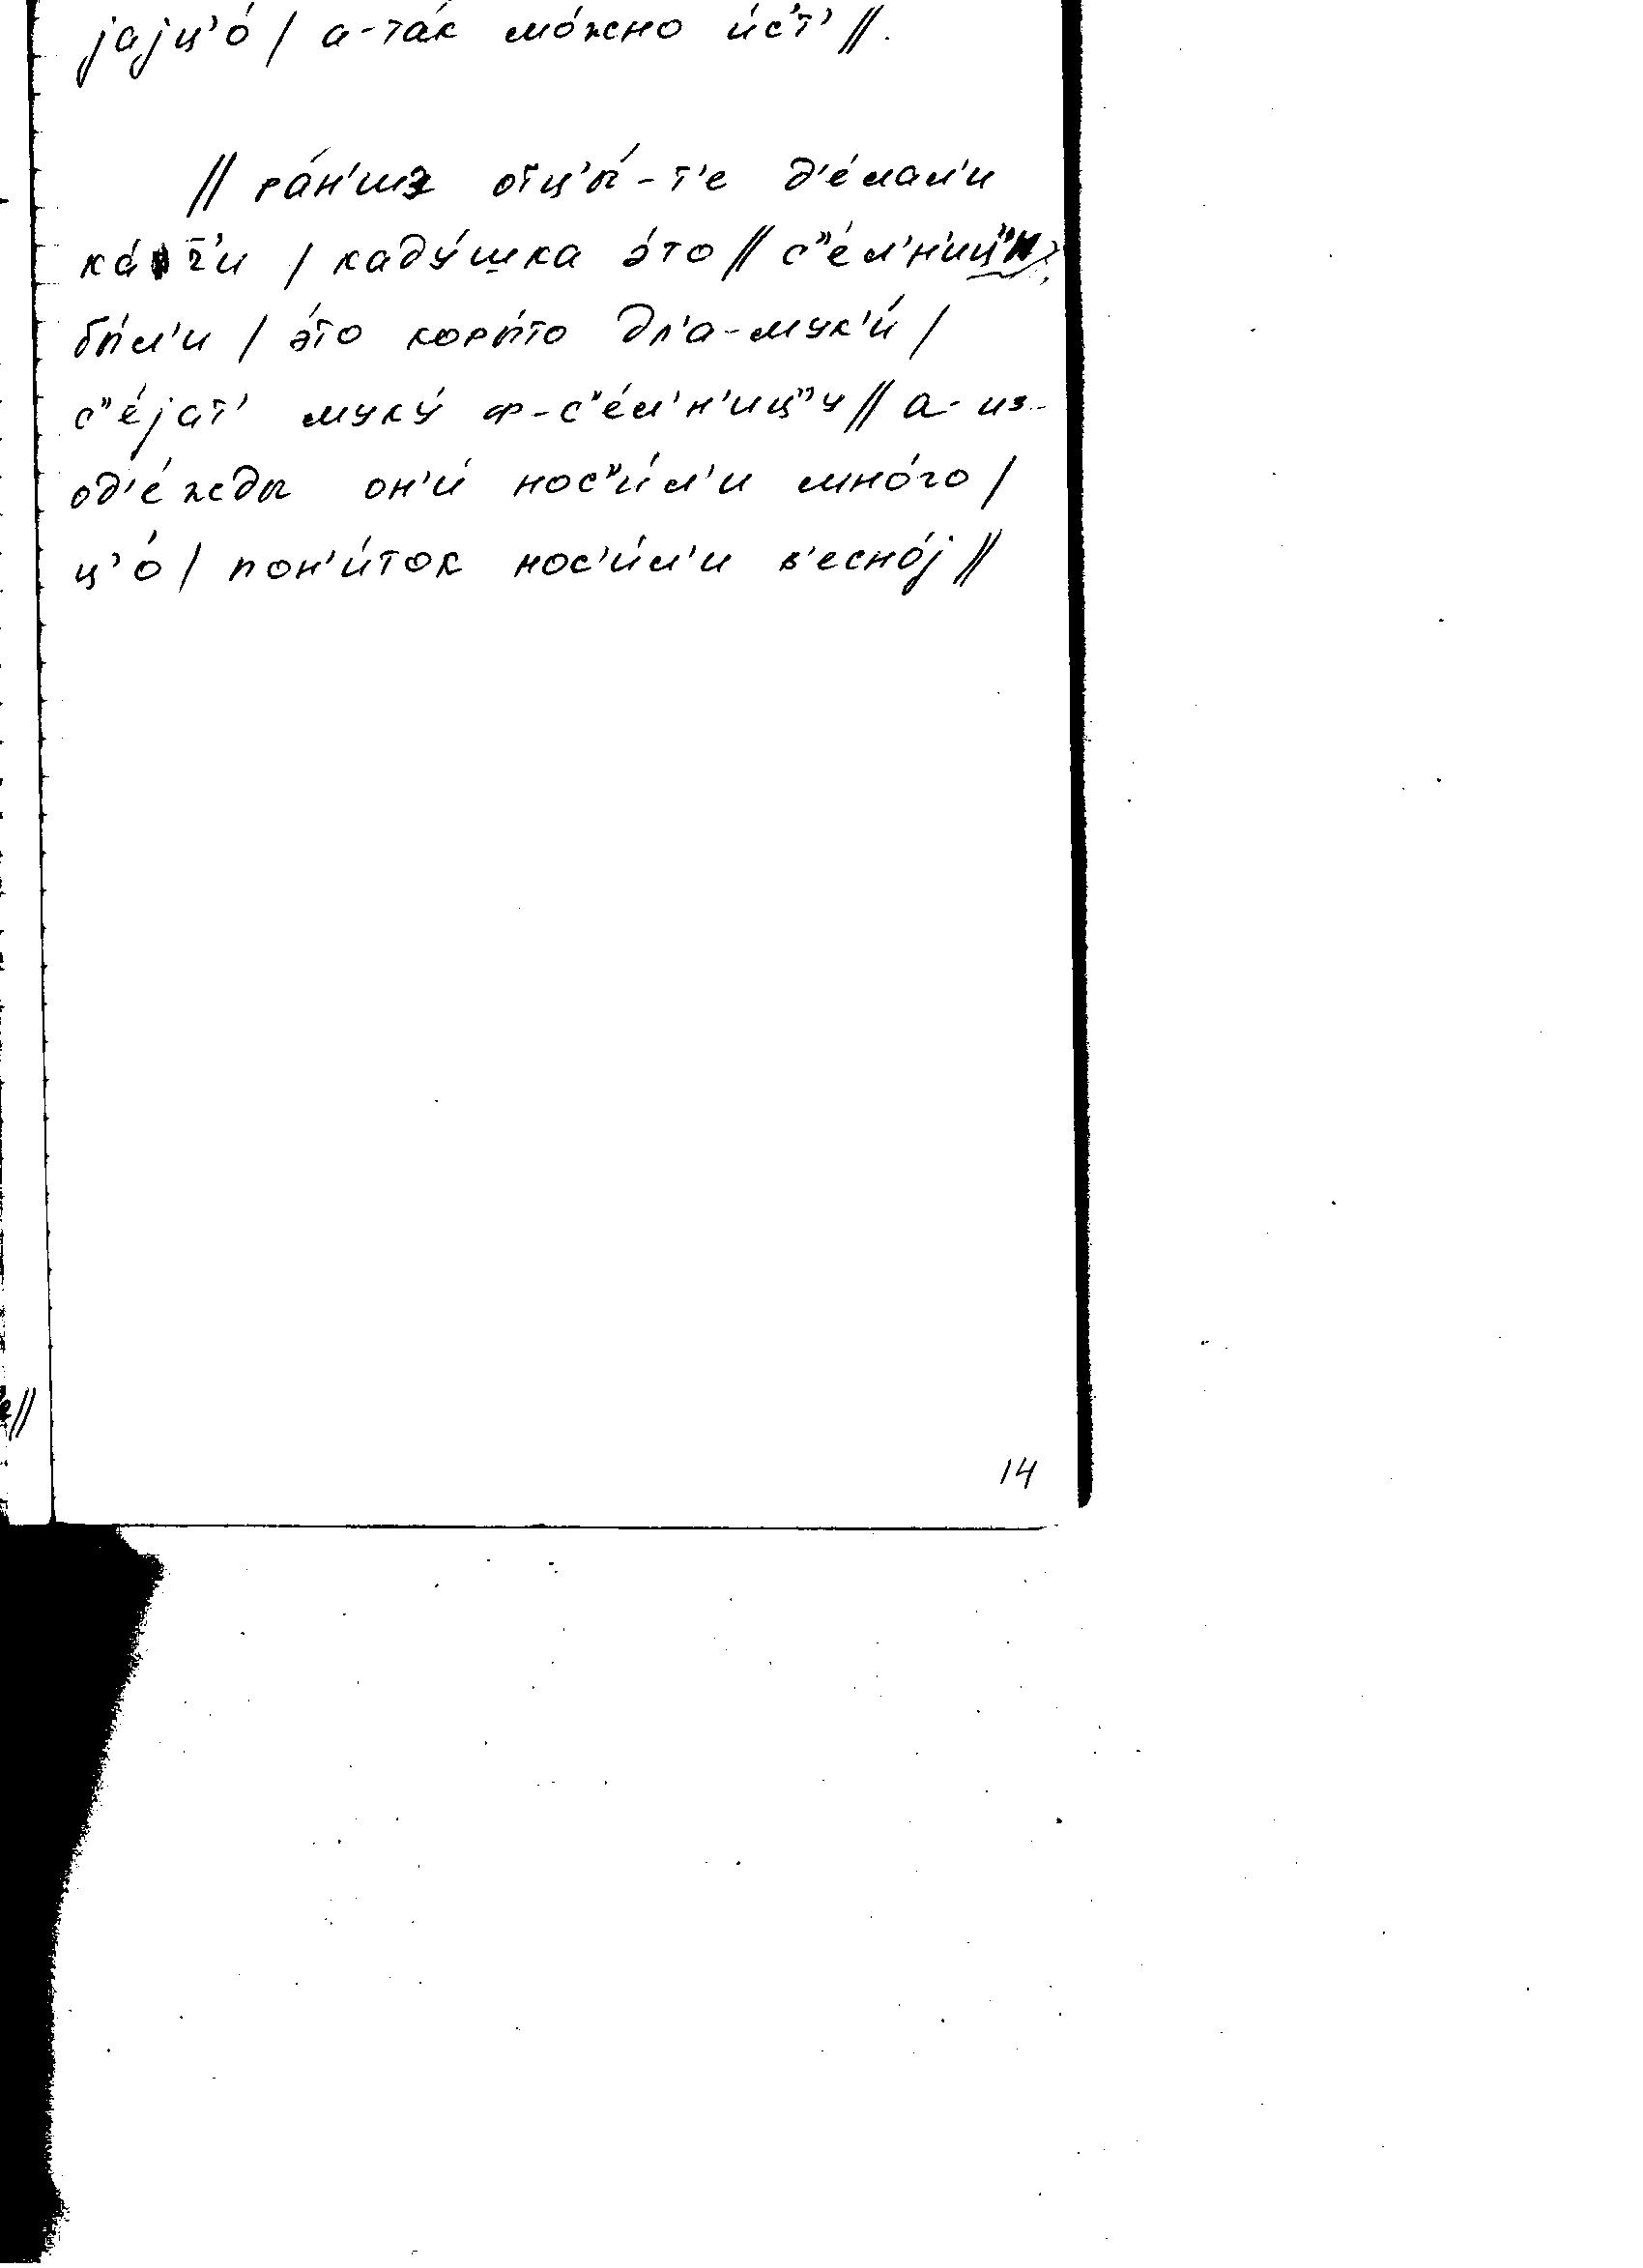 јајц’о́ / а-та́к мо́жно и́с’т’ //.
// ра́н’шэ отц’ы́-т’е д’е́лал’и
/ каду́шка э́то // с”е́л’н’иц”и
бы́л’и / э́то коры́то дл’а-мук’и́ /
с”е́јат’ муку́ ф-с”е́л’н’иц”у // а-из-
од’е́жды он’и́ нос”и́л’и мно́го /
ц’о́ / пон’и́ток нос’и́л’и в’есно́ј //
//
14